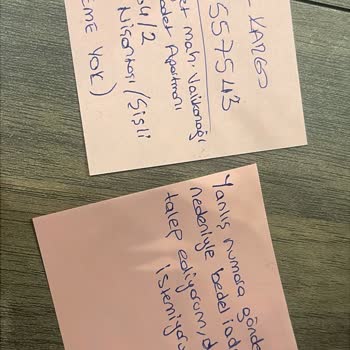 - KARGO
557543
et mah. Valikonağı
adet Apartmanı
64/2
Nişantaşı/Şişli
EME YOK)
Yanlış numara gönde
nedeniyle bedel iad
talep ediyorum, d
istemiyoru